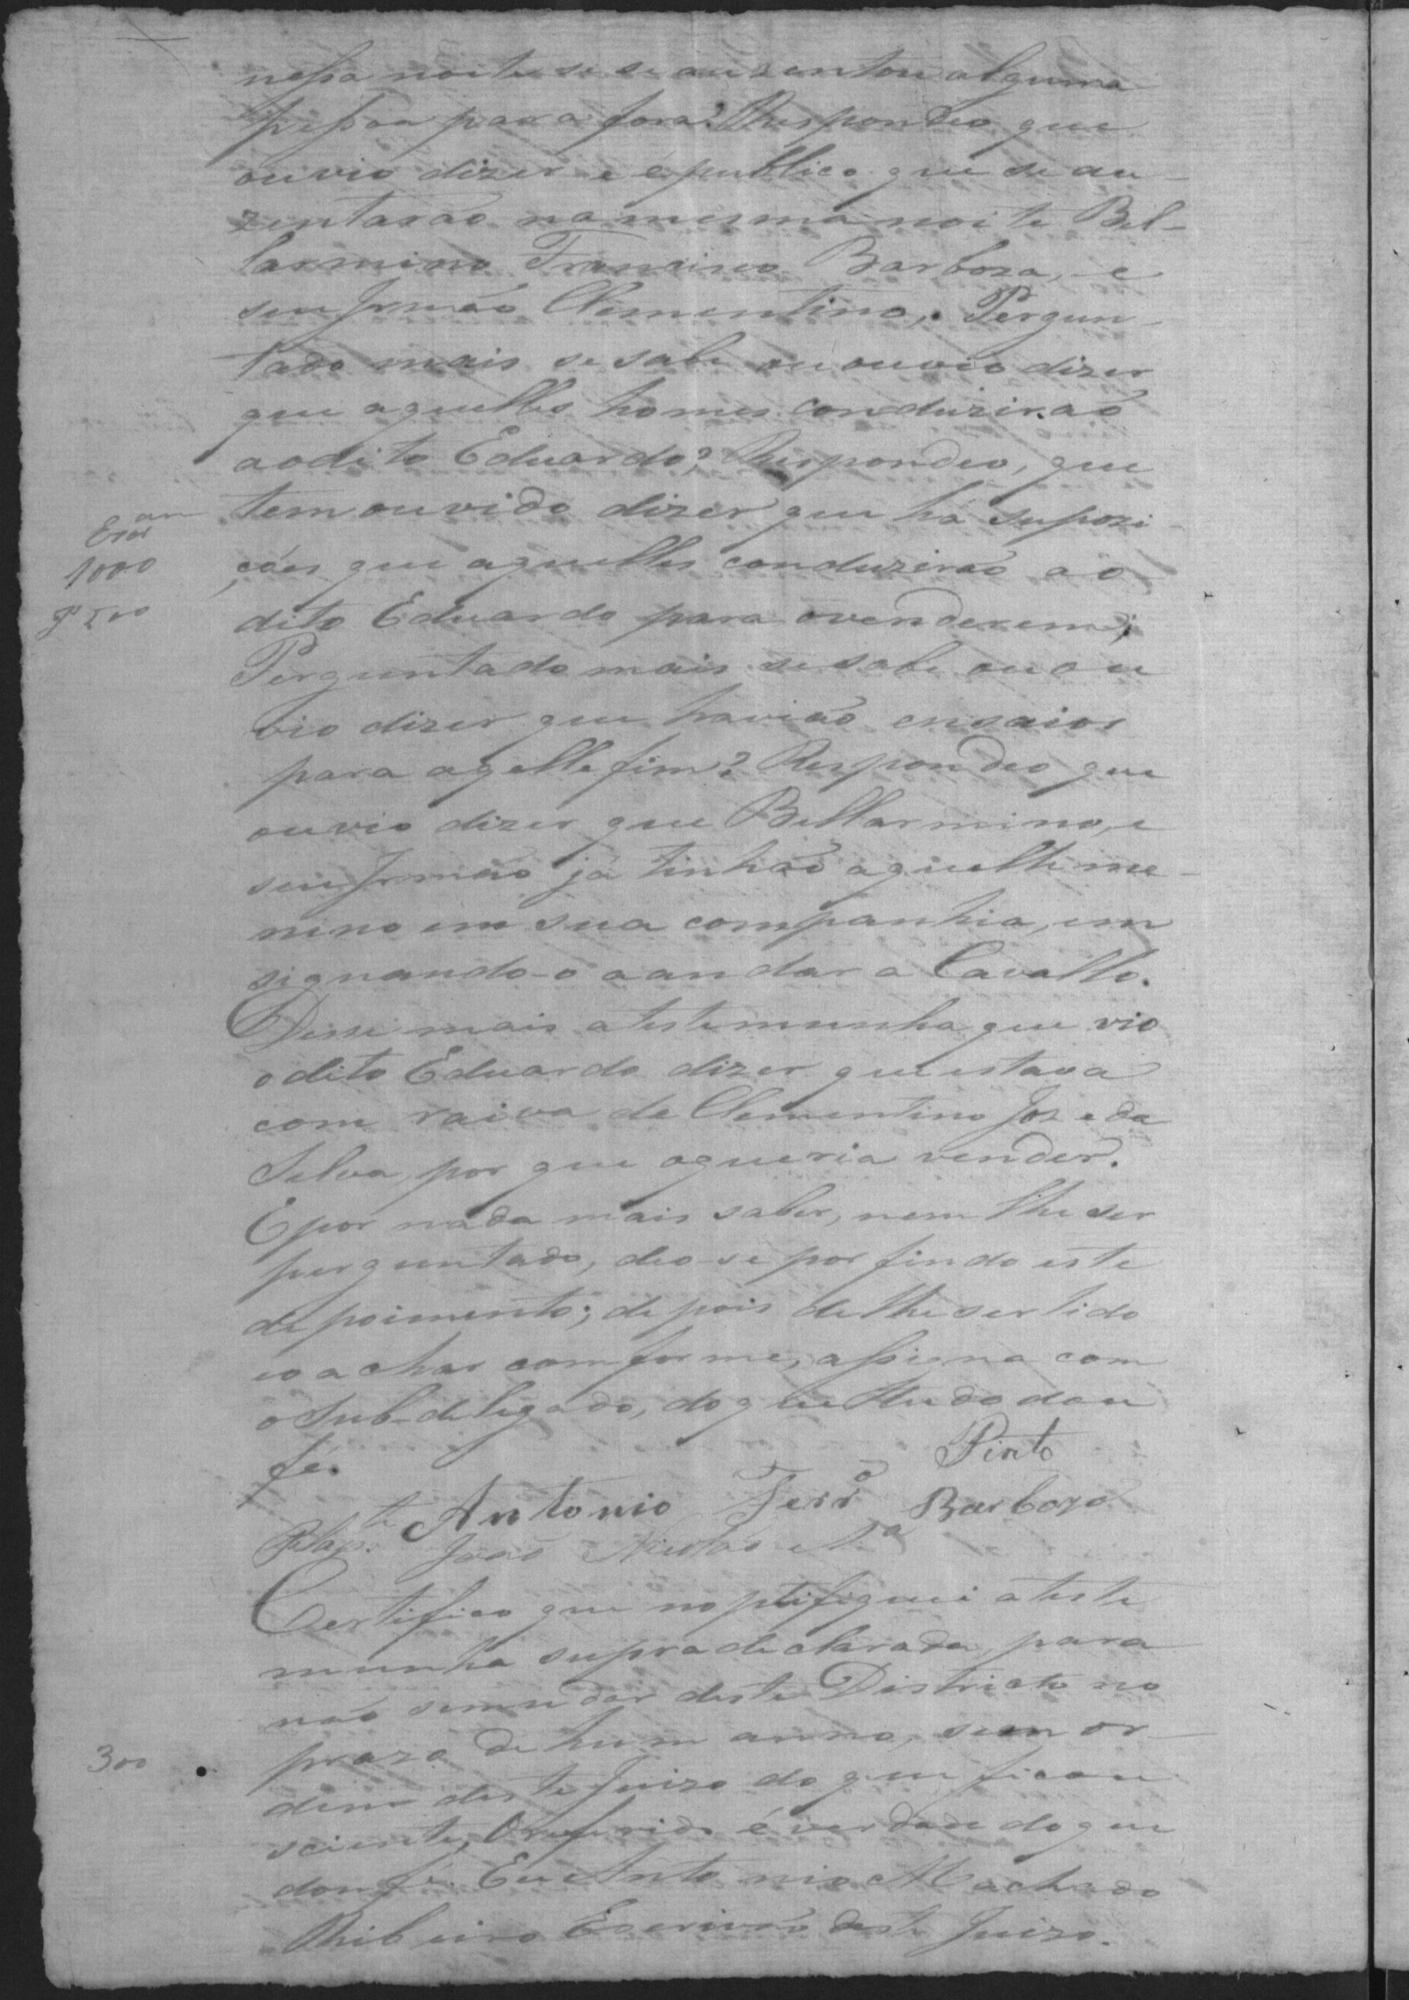 nessa noite se se auzentou alguma
pessoa para fora? Respondeo que
ouvio dizer e é publico que se au-
zentarão na mesma noite Bel-
larmino Francisco Barboza, e
seu Irmão Clementino. Pergun-
tado mais se sabe ou ouvio dizer
que aquelles homes conduzirão
ao dito Eduardo? Respondeo, que
tem ouvido dizer que há suposi
ções que aquelles conduzirão ao
dito Eduardo para o venderem;
Perguntado mais se sabe ou ou
vio dizer que havião ensaios
para aqelle fim? Respondeo que
ouvio dizer que Bellarmino, e
seu Irmão já tinhão aquelle me-
nino em sua companhia, em
signando-o a andar a Cavallo.
Disse mais a testemunha que vio
o dito Eduardo dizer que estava
com raiva de Clementino Joze da
Silva, por que o queria vender.
E por nada mais saber, nem lhe ser
perguntado, deo-se por findo este
depoimento; depois de lhe ser lido
eo achar comforme, assigna com
o Sub-delegado, do que tudo dou
fé.
Pinto
Antonio Ferrº Barbozo
João Nicolao
Certifico que noptifiquei a teste
munha supra declarada, para
não semudar deste Districto no
prazo de hum anno, sem or-
dem deste Juizo do que ficou
sciente, O referido é verdade do que
dou fé. Eu Antonio Machado
Ribeiro Escrivão deste Juizo.
1000
500
300